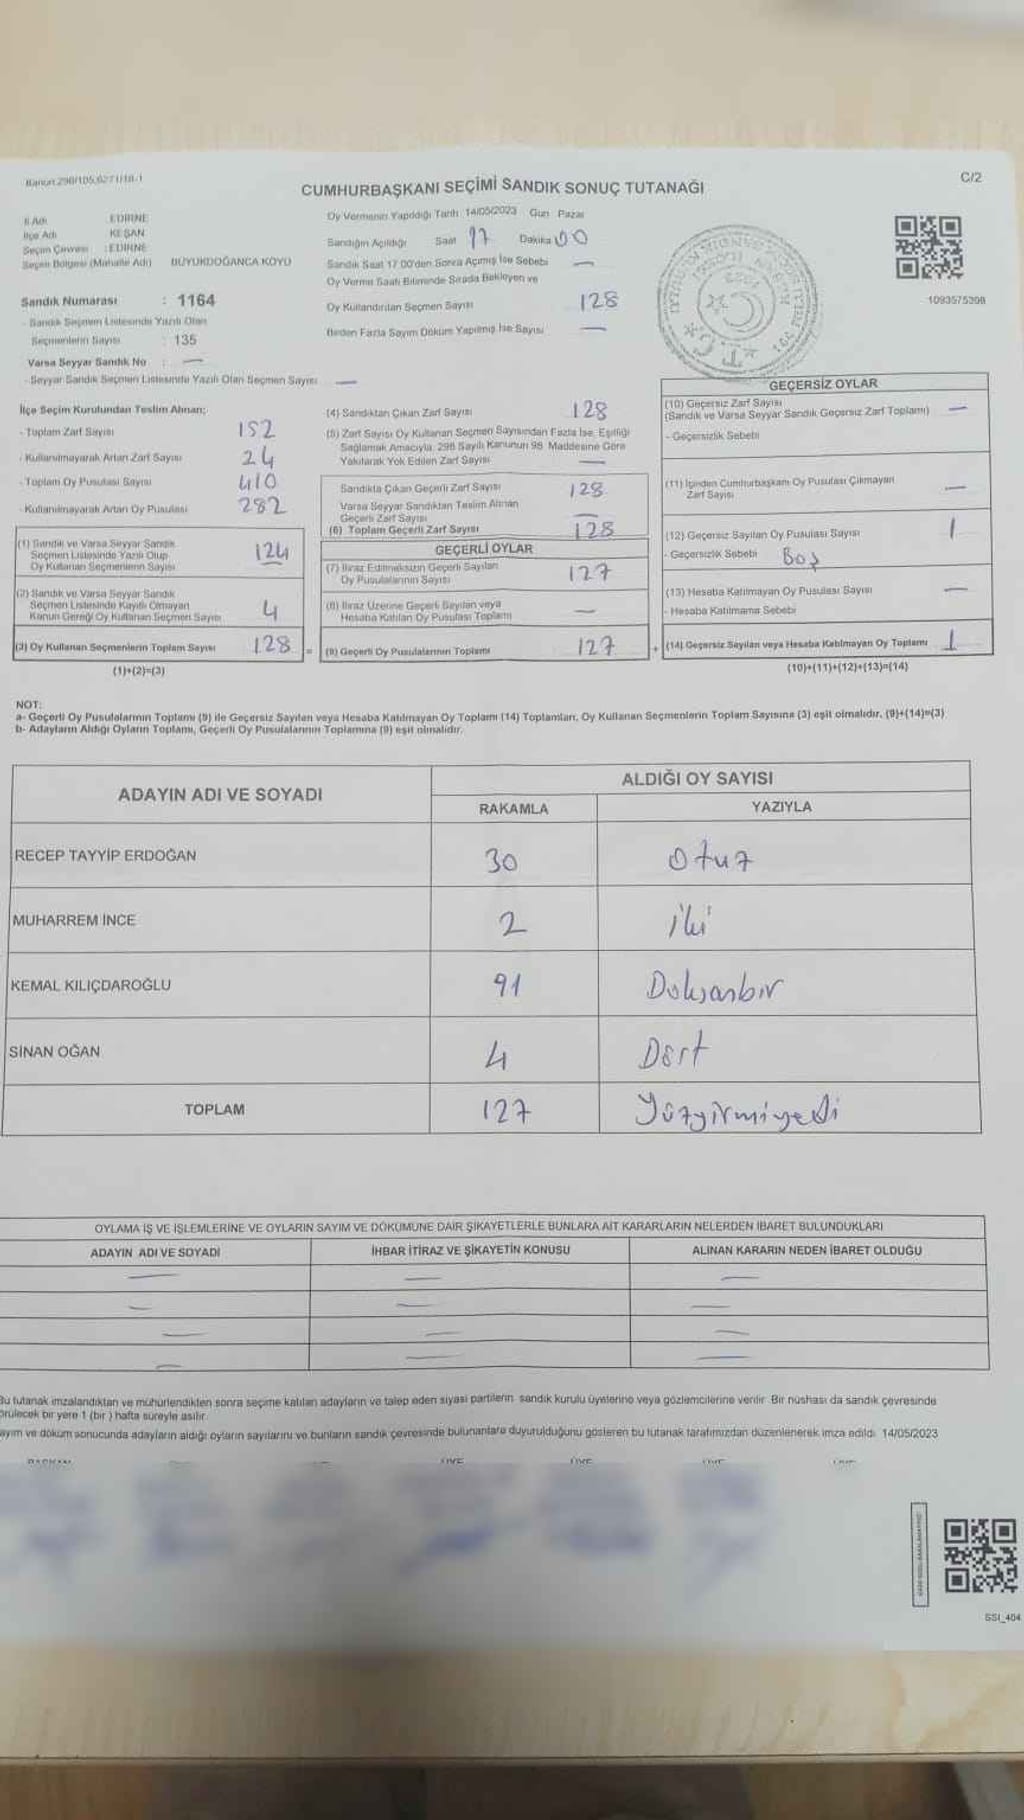 Kanun:298/105,6271/18-1
C/2
CUMHURBAŞKANI SEÇİMİ SANDIK SONUÇ TUTANAĞI
İl Adı EDİRNE
İlçe Adı KEŞAN
Seçim Çevresi : EDİRNE
Seçim Bölgesi (Mahalle Adı) BÜYÜKDOĞANCA KÖYÜ
Sandık Numarası : 1164
- Sandık Seçmen Listesinde Yazılı Olan
Seçmenlerin Sayısı : 135
Varsa Seyyar Sandık No : —
- Seyyar Sandık Seçmen Listesinde Yazılı Olan Seçmen Sayısı —
Oy Vermenin Yapıldığı Tarih 14/05/2023 Gün Pazar
Sandığın Açıldığı Saat 17 Dakika 00
Sandık Saat 17:00'den Sonra Açılmış İse Sebebi —
Oy Verme Saati Bitiminde Sırada Bekleyen ve
Oy Kullandırılan Seçmen Sayısı 128
Birden Fazla Sayım Döküm Yapılmış İse Sayısı —
1093575398
İlçe Seçim Kurulundan Teslim Alınan;
- Toplam Zarf Sayısı 152
- Kullanılmayarak Artan Zarf Sayısı 24
- Toplam Oy Pusulası Sayısı 410
- Kullanılmayarak Artan Oy Pusulası 282
(1) Sandık ve Varsa Seyyar Sandık
Seçmen Listesinde Yazılı Olup
Oy Kullanan Seçmenlerin Sayısı 124
(2) Sandık ve Varsa Seyyar Sandık
Seçmen Listesinde Kayıtlı Olmayan
Kanun Gereği Oy Kullanan Seçmen Sayısı 4
(3) Oy Kullanan Seçmenlerin Toplam Sayısı 128 =
(1)+(2)=(3)
(4) Sandıktan Çıkan Zarf Sayısı 128
(5) Zarf Sayısı Oy Kullanan Seçmen Sayısından Fazla İse, Eşitliği
Sağlamak Amacıyla, 298 Sayılı Kanunun 98. Maddesine Göre
Yakılarak Yok Edilen Zarf Sayısı —
Sandıkta Çıkan Geçerli Zarf Sayısı 128
Varsa Seyyar Sandıktan Teslim Alınan
Geçerli Zarf Sayısı —
(6) Toplam Geçerli Zarf Sayısı 128
GEÇERLİ OYLAR
(7) İtiraz Edilmeksizin Geçerli Sayılan
Oy Pusulalarının Sayısı 127
(8) İtiraz Üzerine Geçerli Sayılan veya
Hesaba Katılan Oy Pusulası Toplamı —
(9) Geçerli Oy Pusulalarının Toplamı 127 +
GEÇERSİZ OYLAR
(10) Geçersiz Zarf Sayısı
(Sandık ve Varsa Seyyar Sandık Geçersiz Zarf Toplamı) —
- Geçersizlik Sebebi
(11) İçinden Cumhurbaşkanı Oy Pusulası Çıkmayan
Zarf Sayısı —
(12) Geçersiz Sayılan Oy Pusulası Sayısı 1
- Geçersizlik Sebebi Boş
(13) Hesaba Katılmayan Oy Pusulası Sayısı —
- Hesaba Katılmama Sebebi
(14) Geçersiz Sayılan veya Hesaba Katılmayan Oy Toplamı 1
(10)+(11)+(12)+(13)=(14)
NOT:
a- Geçerli Oy Pusulalarının Toplamı (9) ile Geçersiz Sayılan veya Hesaba Katılmayan Oy Toplamı (14) Toplamları, Oy Kullanan Seçmenlerin Toplam Sayısına (3) eşit olmalıdır. (9)+(14)=(3)
b- Adayların Aldığı Oyların Toplamı, Geçerli Oy Pusulalarının Toplamına (9) eşit olmalıdır.
ADAYIN ADI VE SOYADI
ALDIĞI OY SAYISI
RAKAMLA YAZIYLA
RECEP TAYYİP ERDOĞAN 30 Otuz
MUHARREM İNCE 2 iki
KEMAL KILIÇDAROĞLU 91 Doksanbir
SİNAN OĞAN 4 Dört
TOPLAM 127 Yüzyirmiyedi
OYLAMA İŞ VE İŞLEMLERİNE VE OYLARIN SAYIM VE DÖKÜMÜNE DAİR ŞİKAYETLERLE BUNLARA AİT KARARLARIN NELERDEN İBARET BULUNDUKLARI
ADAYIN ADI VE SOYADI İHBAR İTİRAZ VE ŞİKAYETİN KONUSU ALINAN KARARIN NEDEN İBARET OLDUĞU
— — —
— — —
— — —
— — —
Bu tutanak imzalandıktan ve mühürlendikten sonra seçime katılan adayların ve talep eden siyasi partilerin sandık kurulu üyelerine veya gözlemcilerine verilir. Bir nüshası da sandık çevresinde
görülecek bir yere 1 (bir ) hafta süreyle asılır.
Sayım ve döküm sonucunda adayların aldığı oyların sayılarını ve bunların sandık çevresinde bulunanlara duyurulduğunu gösteren bu tutanak tarafımızdan düzenlenerek imza edildi. 14/05/2023
SSI_404